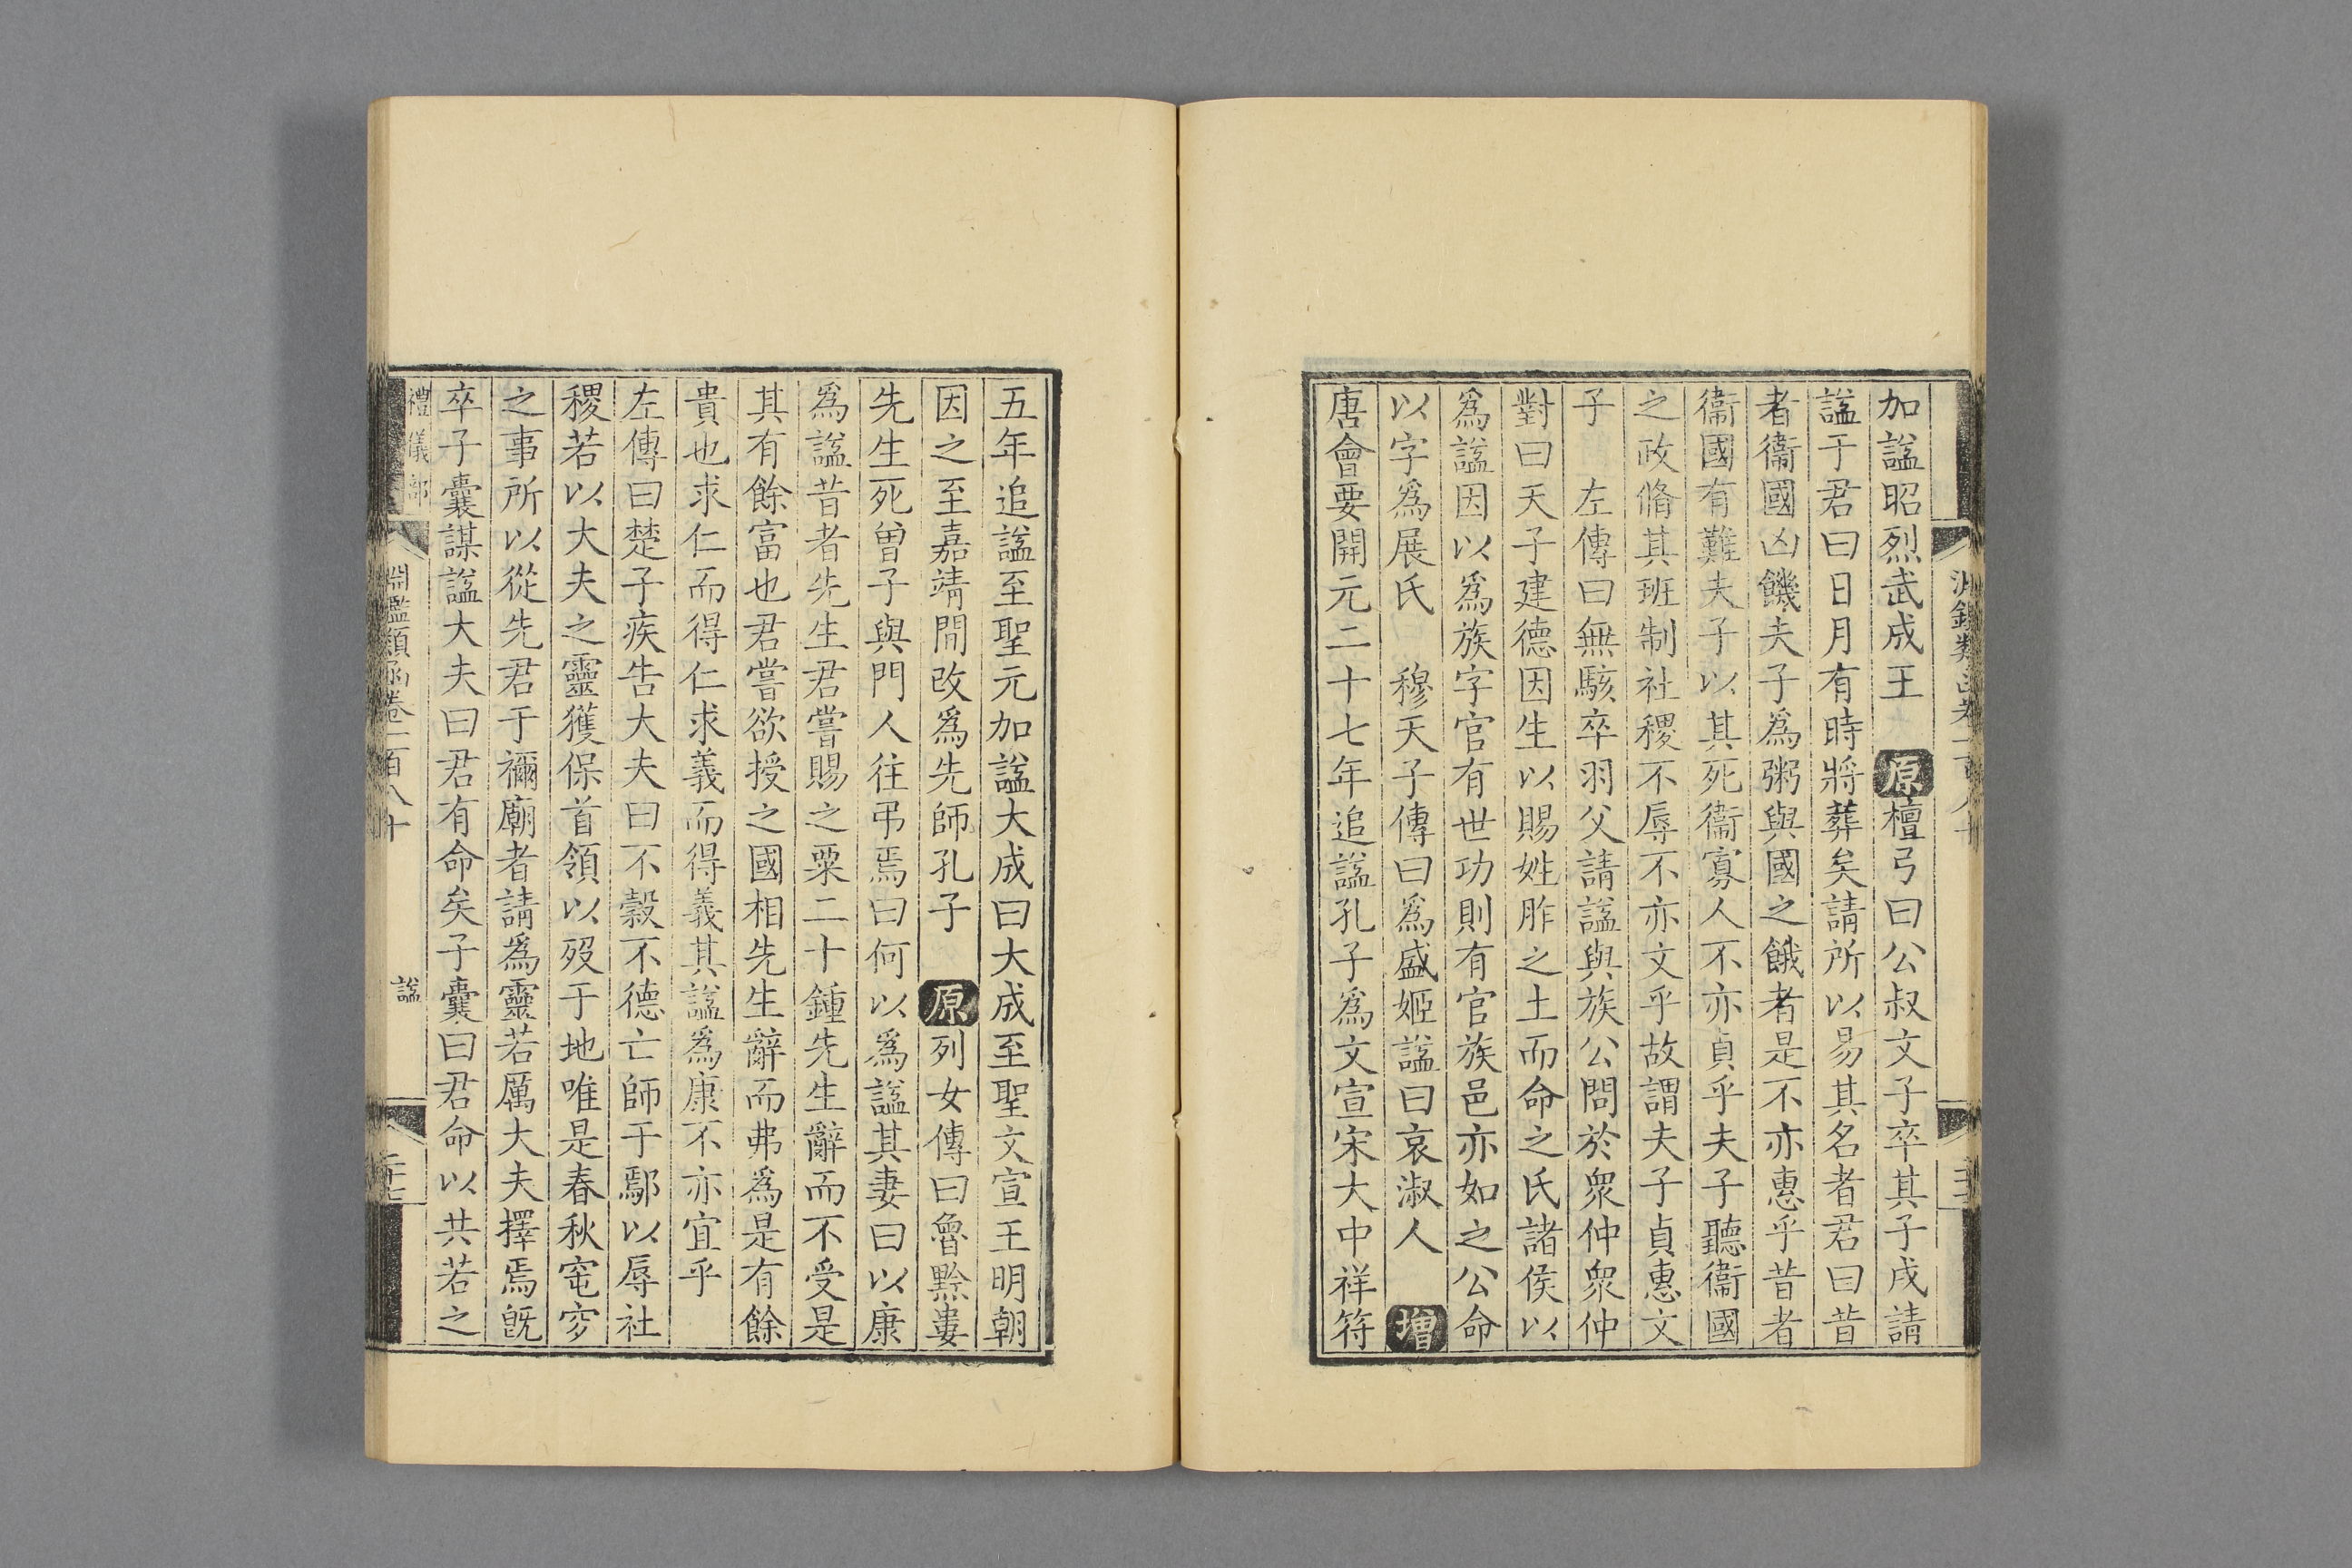 加諡昭烈武成王　原檀弓曰公叔文子卒其子戌請
諡于君曰日月有時將葬矣請所以易其名者君曰昔
者衞國凶饑夫子爲粥與國之餓者是不亦惠乎昔者
衞國有難夫子以其死衞寡人不亦貞乎夫子聽衞國
之政脩其班制社稷不辱不亦文乎故謂夫子貞惠文
子　左傳曰無駭卒羽父請諡與族公問於衆仲衆仲
對曰天子建德因生以賜姓胙之土而命之氏諸侯以
爲諡因以爲族字官有世功則有官族邑亦如之公命
以字爲展氏　穆天子傳曰爲盛姬諡曰哀淑人　增
唐會要開元二十七年追諡孔子爲文宣宋大中祥符
五年追諡至聖元加諡大成曰大成至聖文宣王明朝
因之至嘉靖間改爲先師孔子　原列女傳曰魯黔婁
先生死曾子與門人往弔焉曰何以爲諡其妻曰以康
爲諡昔者先生君嘗賜之粟二十鍾先生辭而不受是
其有餘富也君嘗欲授之國相先生辭而弗爲是有餘
貴也求仁而得仁求義而得義其諡爲康不亦宜乎
左傳曰楚子疾告大夫曰不穀不德亡師于鄢以辱社
稷若以大夫之靈獲保首領以歿于地唯是春秋窀穸
之事所以從先君于禰廟者請爲靈若厲大夫擇焉旣
卒子囊謀諡大夫曰君有命矣子囊曰君命以共若之
禮儀部
淵鑑類函卷一百八十
諡